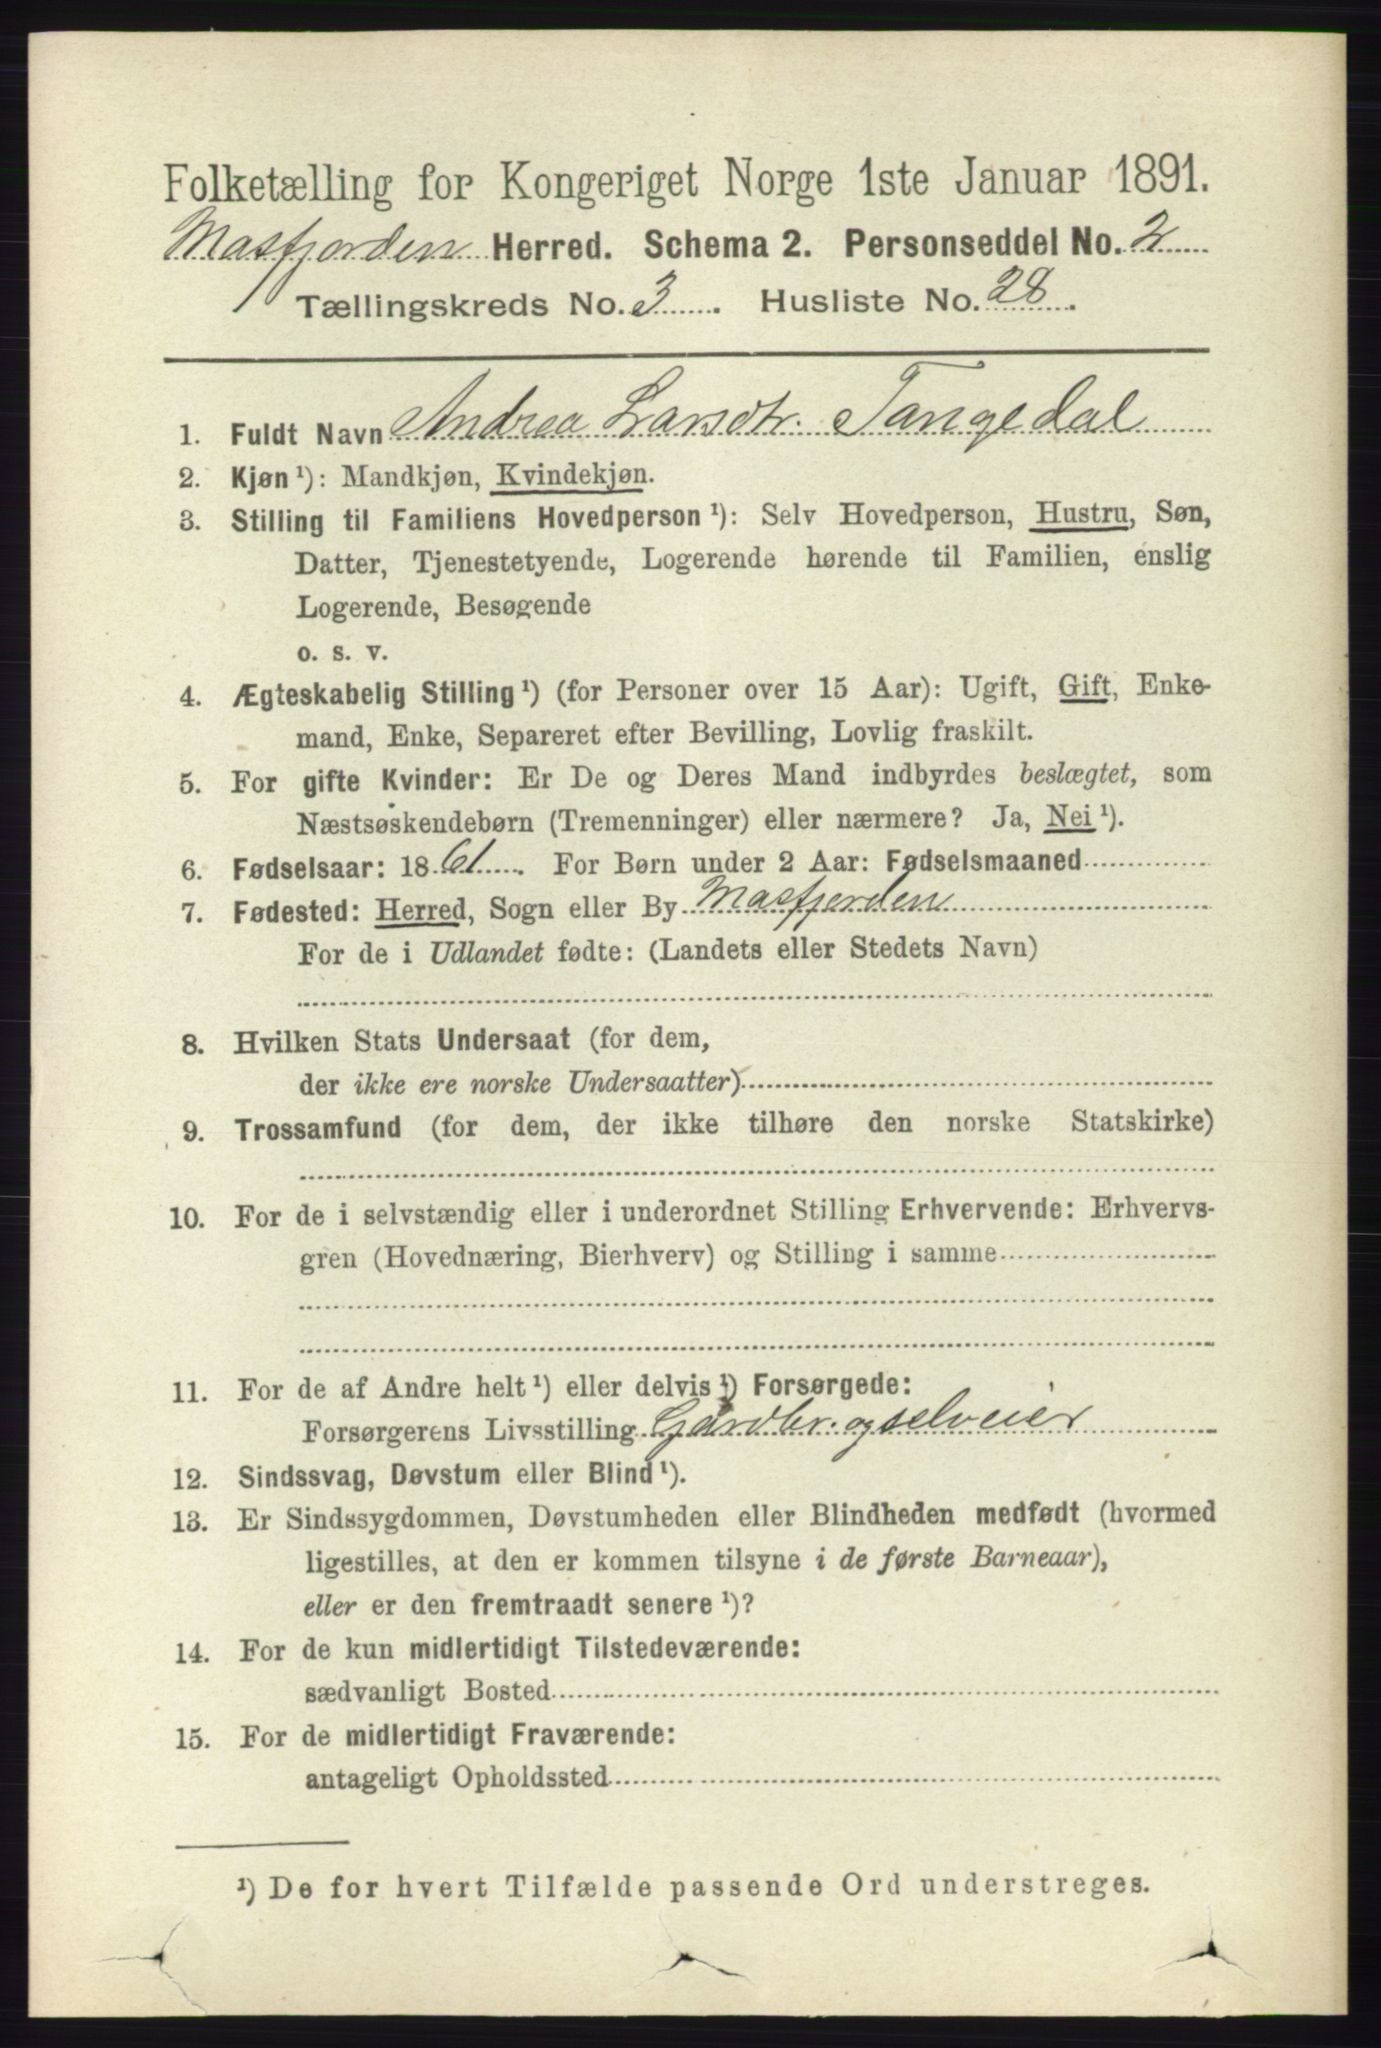 Folketælling for Kongeriget Norge 1ste Januar 1891.
Masfjorden Herred. Schema 2. Personseddel No. 2
Tællingskreds No. 3. Husliste No. 28.
1. Fuldt Navn Andrea Larsdtr. Tangedal
2. Kjøn¹): Mandkjøn, Kvindekjøn.
3. Stilling til Familiens Hovedperson¹): Selv Hovedperson, Hustru, Søn,
Datter, Tjenestetyende, Logerende hørende til Familien, enslig
Logerende, Besøgende
o. s. v.
4. Ægteskabelig Stilling¹) (for Personer over 15 Aar): Ugift, Gift, Enke-
mand, Enke, Separeret efter Bevilling, Lovlig fraskilt.
5. For gifte Kvinder: Er De og Deres Mand indbyrdes beslægtet, som
Næstsøskendebørn (Tremenninger) eller nærmere? Ja, Nei¹).
6. Fødselsaar: 1861. For Børn under 2 Aar: Fødselsmaaned
7. Fødested: Herred, Sogn eller By Masfjorden
For de i Udlandet fødte: (Landets eller Stedets Navn)
8. Hvilken Stats Undersaat (for dem,
der ikke ere norske Undersaatter)
9. Trossamfund (for dem, der ikke tilhøre den norske Statskirke)
10. For de i selvstændig eller i underordnet Stilling Erhvervende: Erhvervs-
gren (Hovednæring, Bierhverv) og Stilling i samme
11. For de af Andre helt¹) eller delvis¹) Forsørgede:
Forsørgerens Livsstilling Gårdbr. og selveier
12. Sindssvag, Døvstum eller Blind¹).
13. Er Sindssygdommen, Døvstumheden eller Blindheden medfødt (hvormed
ligestilles, at den er kommen tilsyne i de første Barneaar),
eller er den fremtraadt senere¹)?
14. For de kun midlertidigt Tilstedeværende:
sædvanligt Bosted
15. For de midlertidigt Fraværende:
antageligt Opholdssted
¹) De for hvert Tilfælde passende Ord understreges.